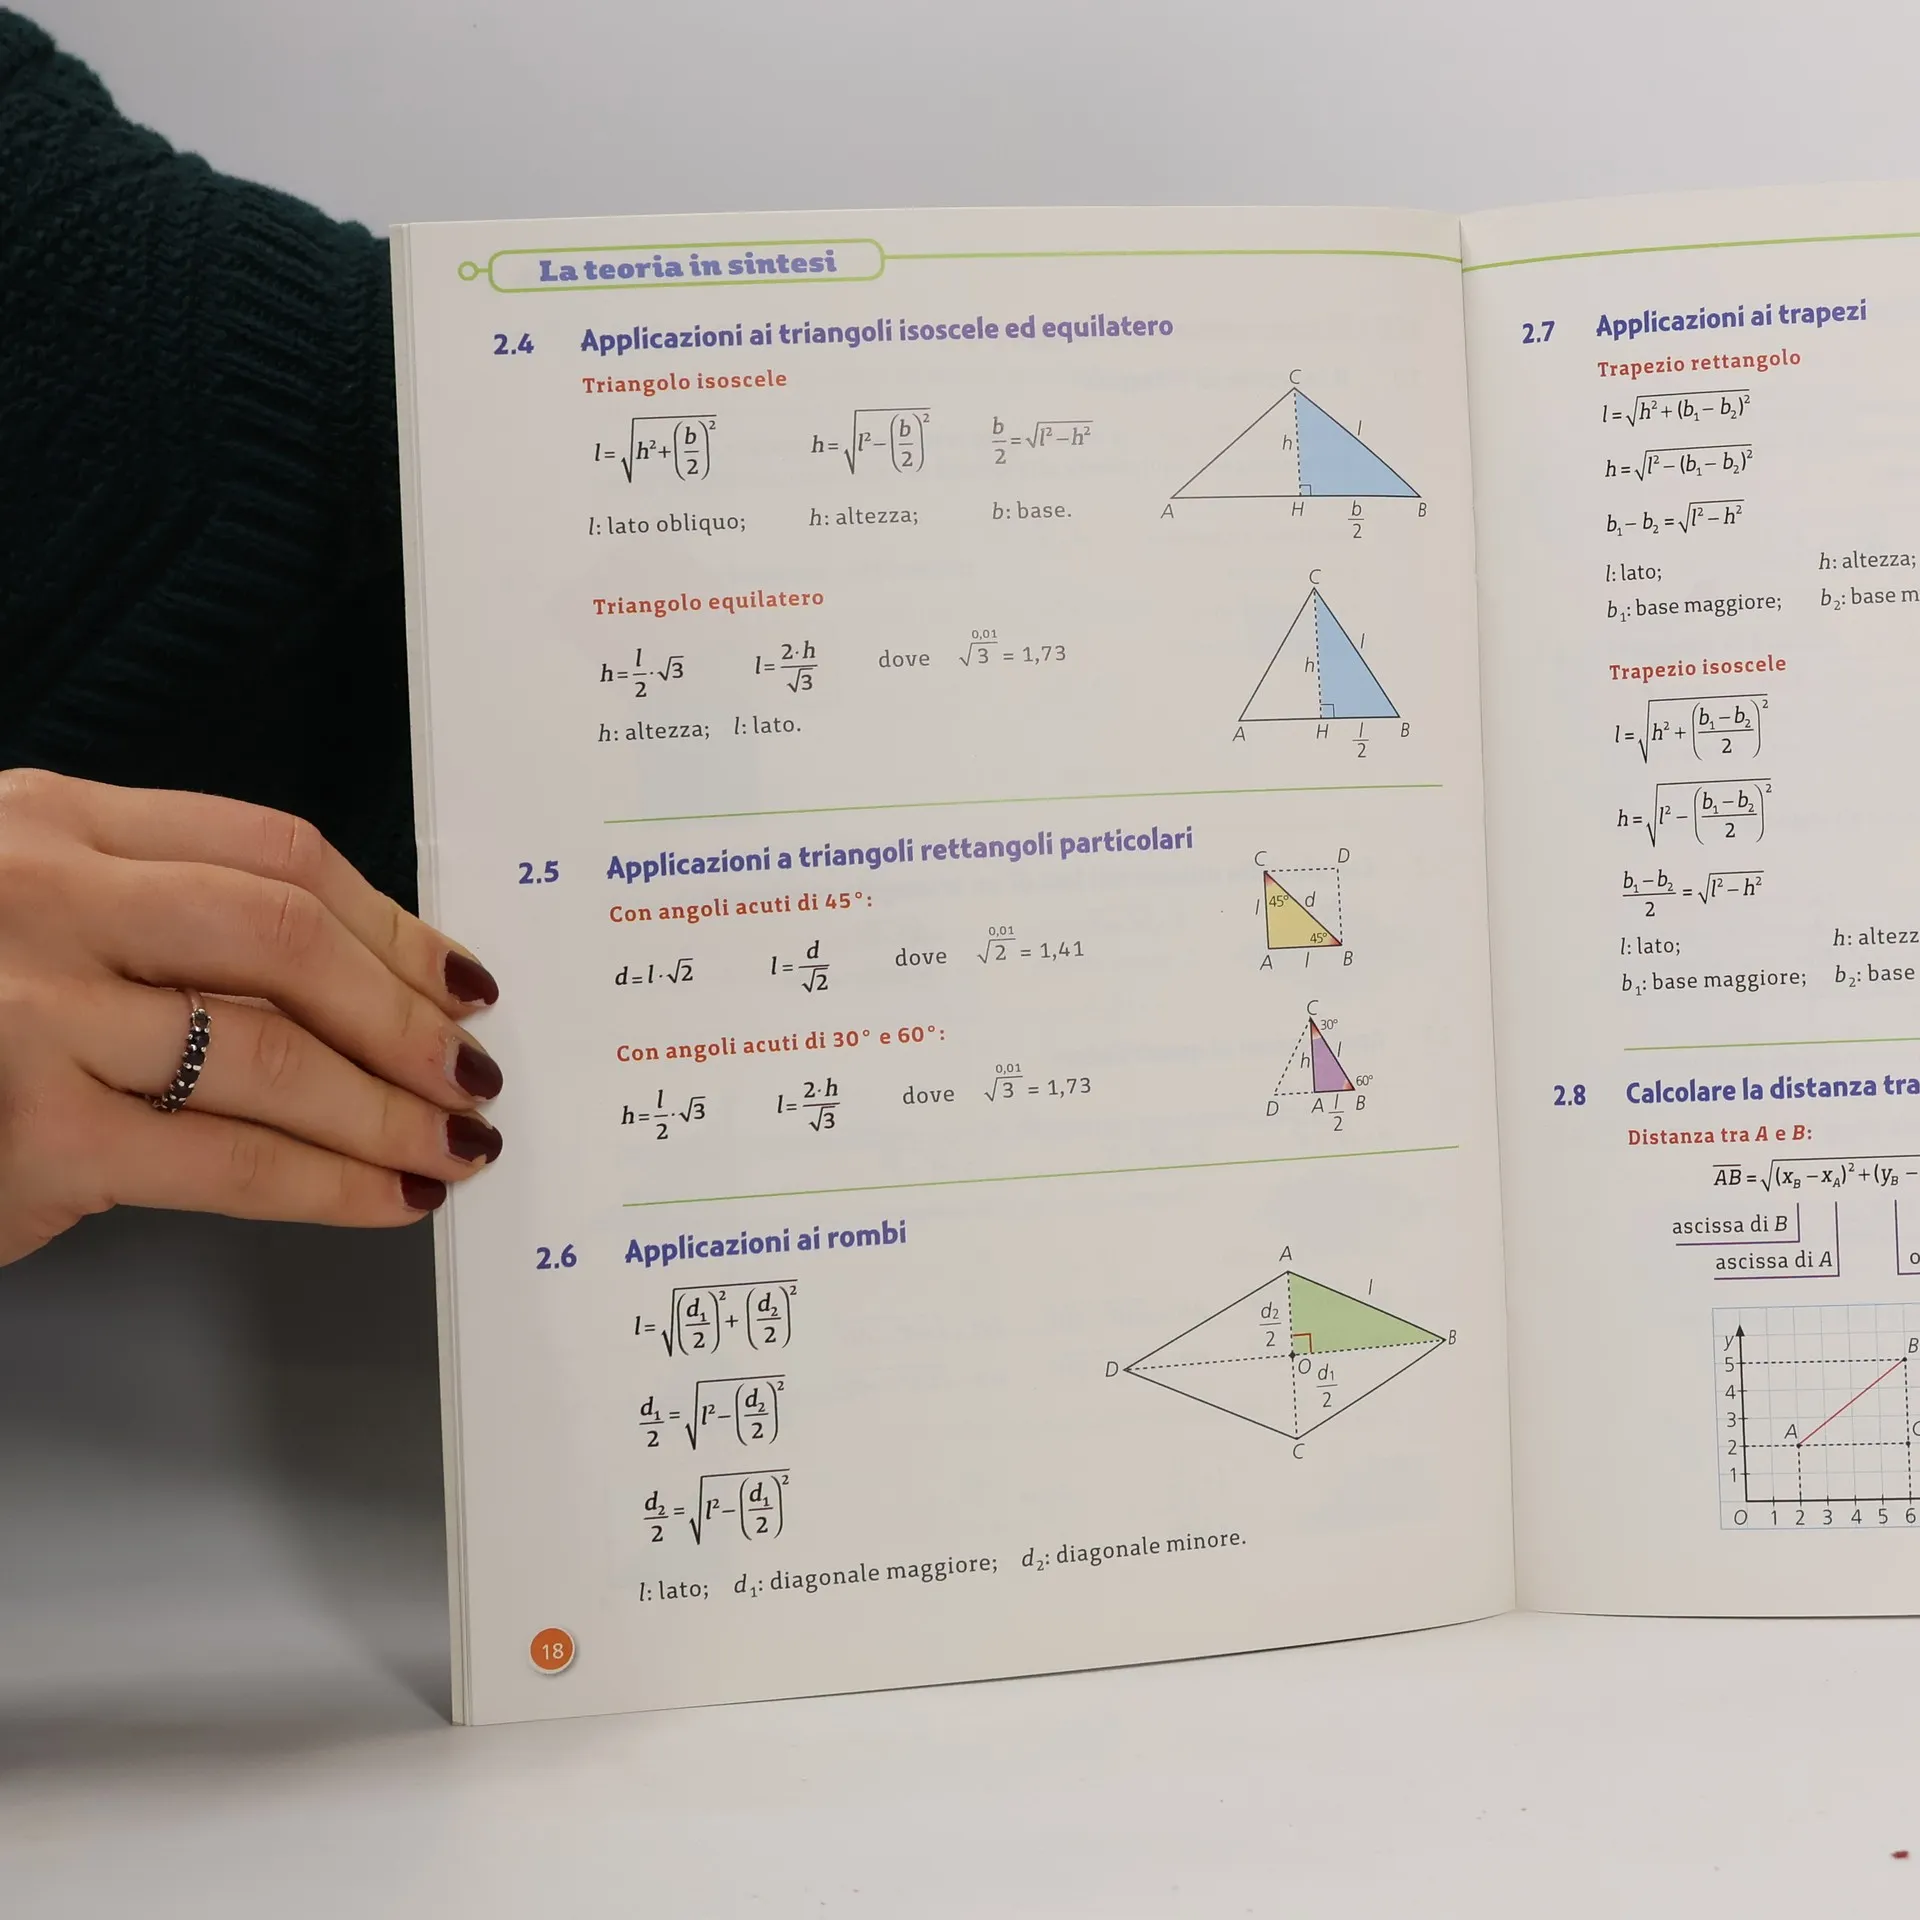 La teoria in sintesi
2.4 Applicazioni ai triangoli isoscele ed equilatero
Triangolo isoscele
l=√(h²+(b/2)²) h=√(l²−(b/2)²) b/2=√(l²−h²)
l: lato obliquo; h: altezza; b: base.
C
h l
A H b/2 B
Triangolo equilatero
h=l/2·√3 l=2·h/√3 dove 0,01 √3 = 1,73
h: altezza; l: lato.
C
h l
A H l/2 B
2.5 Applicazioni a triangoli rettangoli particolari
Con angoli acuti di 45°:
d=l·√2 l=d/√2 dove 0,01 √2 = 1,41
C D
l 45° d
45°
A l B
Con angoli acuti di 30° e 60°:
h=l/2·√3 l=2·h/√3 dove 0,01 √3 = 1,73
C
30°
h l
60°
D A l/2 B
2.6 Applicazioni ai rombi
l=√((d₁/2)²+(d₂/2)²)
d₁/2=√(l²−(d₂/2)²)
d₂/2=√(l²−(d₁/2)²)
A
d₂/2 l
D B
O d₁/2
C
l: lato; d₁: diagonale maggiore; d₂: diagonale minore.
18
2.7 Applicazioni ai trapezi
Trapezio rettangolo
l=√(h²+(b₁−b₂)²)
h=√(l²−(b₁−b₂)²)
b₁−b₂=√(l²−h²)
l: lato; h: altezza;
b₁: base maggiore; b₂: base m
Trapezio isoscele
l=√(h²+((b₁−b₂)/2)²)
h=√(l²−((b₁−b₂)/2)²)
(b₁−b₂)/2=√(l²−h²)
l: lato; h: altezz
b₁: base maggiore; b₂: base
2.8 Calcolare la distanza tra
Distanza tra A e B:
AB=√(x_B−x_A)²+(y_B−
ascissa di B
ascissa di A o
y B
5
4
3 A
2
1
O 1 2 3 4 5 6